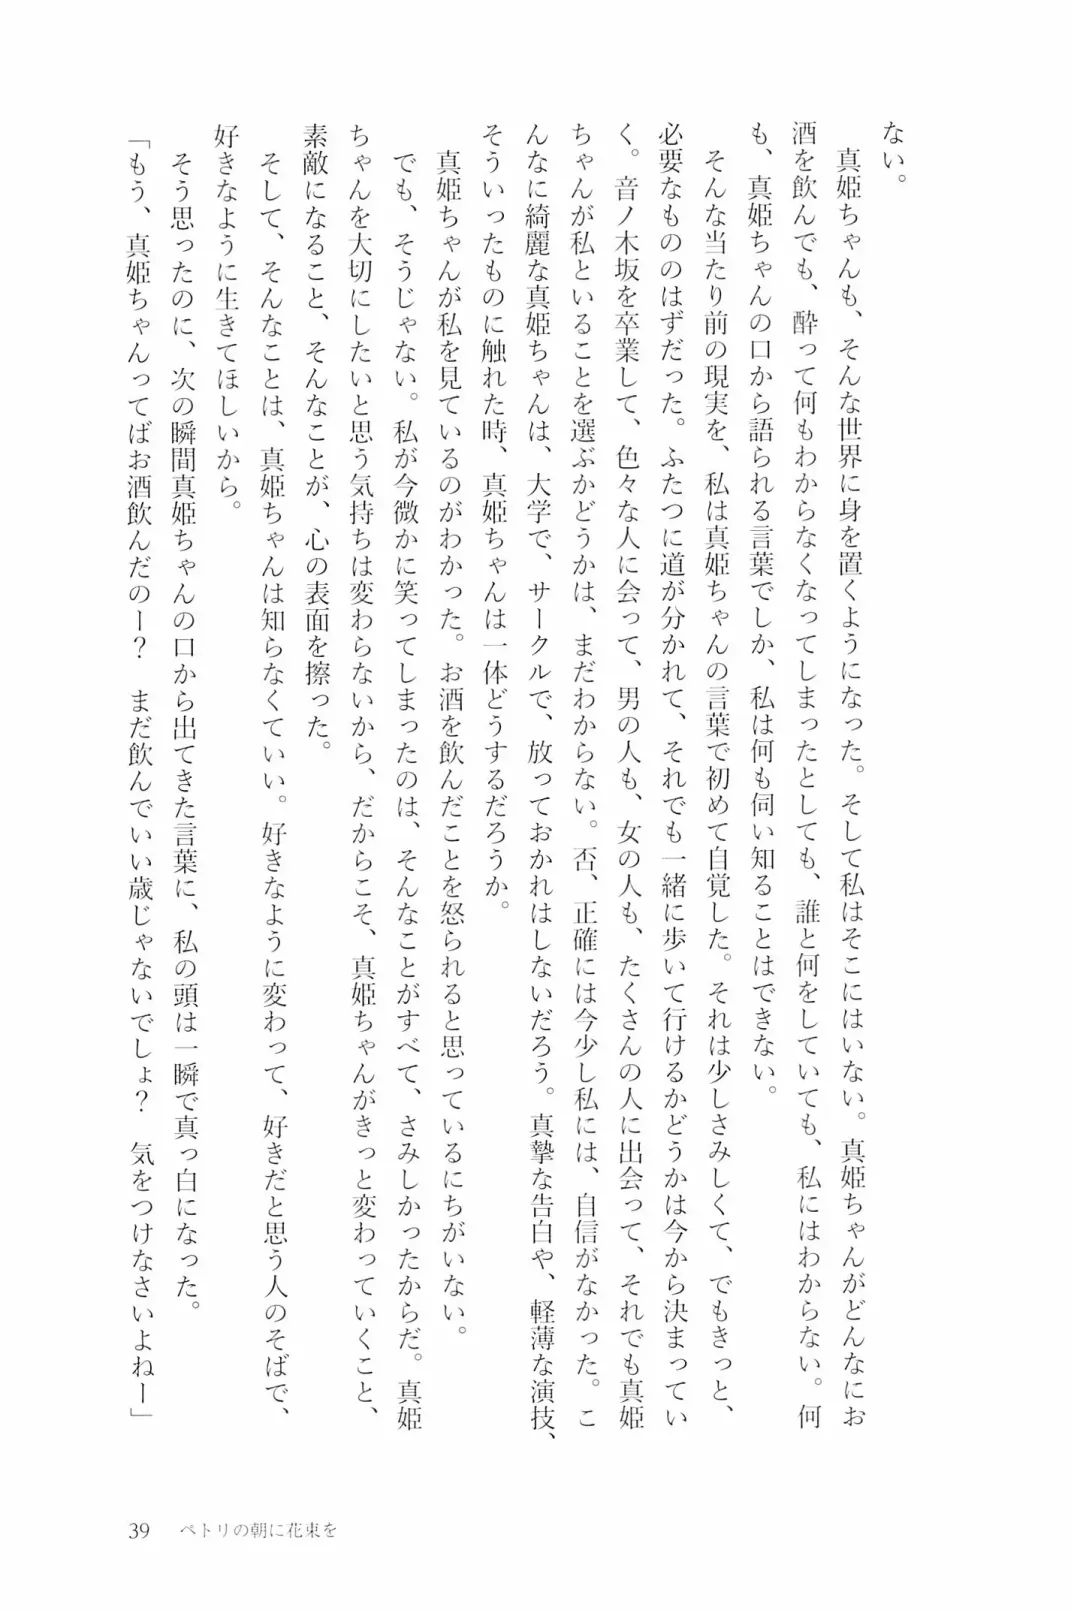 ない。
　真姫ちゃんも、そんな世界に身を置くようになった。そして私はそこにはいない。真姫ちゃんがどんなにお
酒を飲んでも、酔って何もわからなくなってしまったとしても、誰と何をしていても、私にはわからない。何
も、真姫ちゃんの口から語られる言葉でしか、私は何も伺い知ることはできない。
　そんな当たり前の現実を、私は真姫ちゃんの言葉で初めて自覚した。それは少しさみしくて、でもきっと、
必要なもののはずだった。ふたつに道が分かれて、それでも一緒に歩いて行けるかどうかは今から決まってい
く。音ノ木坂を卒業して、色々な人に会って、男の人も、女の人も、たくさんの人に出会って、それでも真姫
ちゃんが私といることを選ぶかどうかは、まだわからない。否、正確には今少し私には、自信がなかった。こ
んなに綺麗な真姫ちゃんは、大学で、サークルで、放っておかれはしないだろう。真摯な告白や、軽薄な演技、
そういったものに触れた時、真姫ちゃんは一体どうするだろうか。
　真姫ちゃんが私を見ているのがわかった。お酒を飲んだことを怒られると思っているにちがいない。
　でも、そうじゃない。私が今微かに笑ってしまったのは、そんなことがすべて、さみしかったからだ。真姫
ちゃんを大切にしたいと思う気持ちは変わらないから、だからこそ、真姫ちゃんがきっと変わっていくこと、
素敵になること、そんなことが、心の表面を擦った。
　そして、そんなことは、真姫ちゃんは知らなくていい。好きなように変わって、好きだと思う人のそばで、
好きなように生きてほしいから。
　そう思ったのに、次の瞬間真姫ちゃんの口から出てきた言葉に、私の頭は一瞬で真っ白になった。
「もう、真姫ちゃんってばお酒飲んだのー？　まだ飲んでいい歳じゃないでしょ？　気をつけなさいよねー」
39　ペトリの朝に花束を